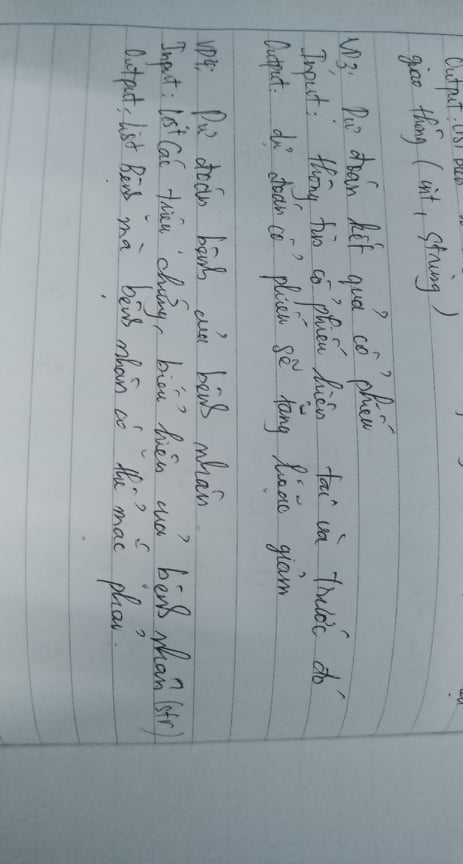 Output: list
giao thông (int, string)
VD3: Dự đoán kết quả cổ phiếu
Input: thông tin cổ phiếu hiện tại và trước đó
Output: dự đoán cổ phiếu sẽ tăng hoặc giảm
VD4: Dự đoán bệnh của bệnh nhân.
Input: list các triệu chứng, biểu hiện của bệnh nhân (str)
Output: list bệnh mà bệnh nhân có thể mắc phải.